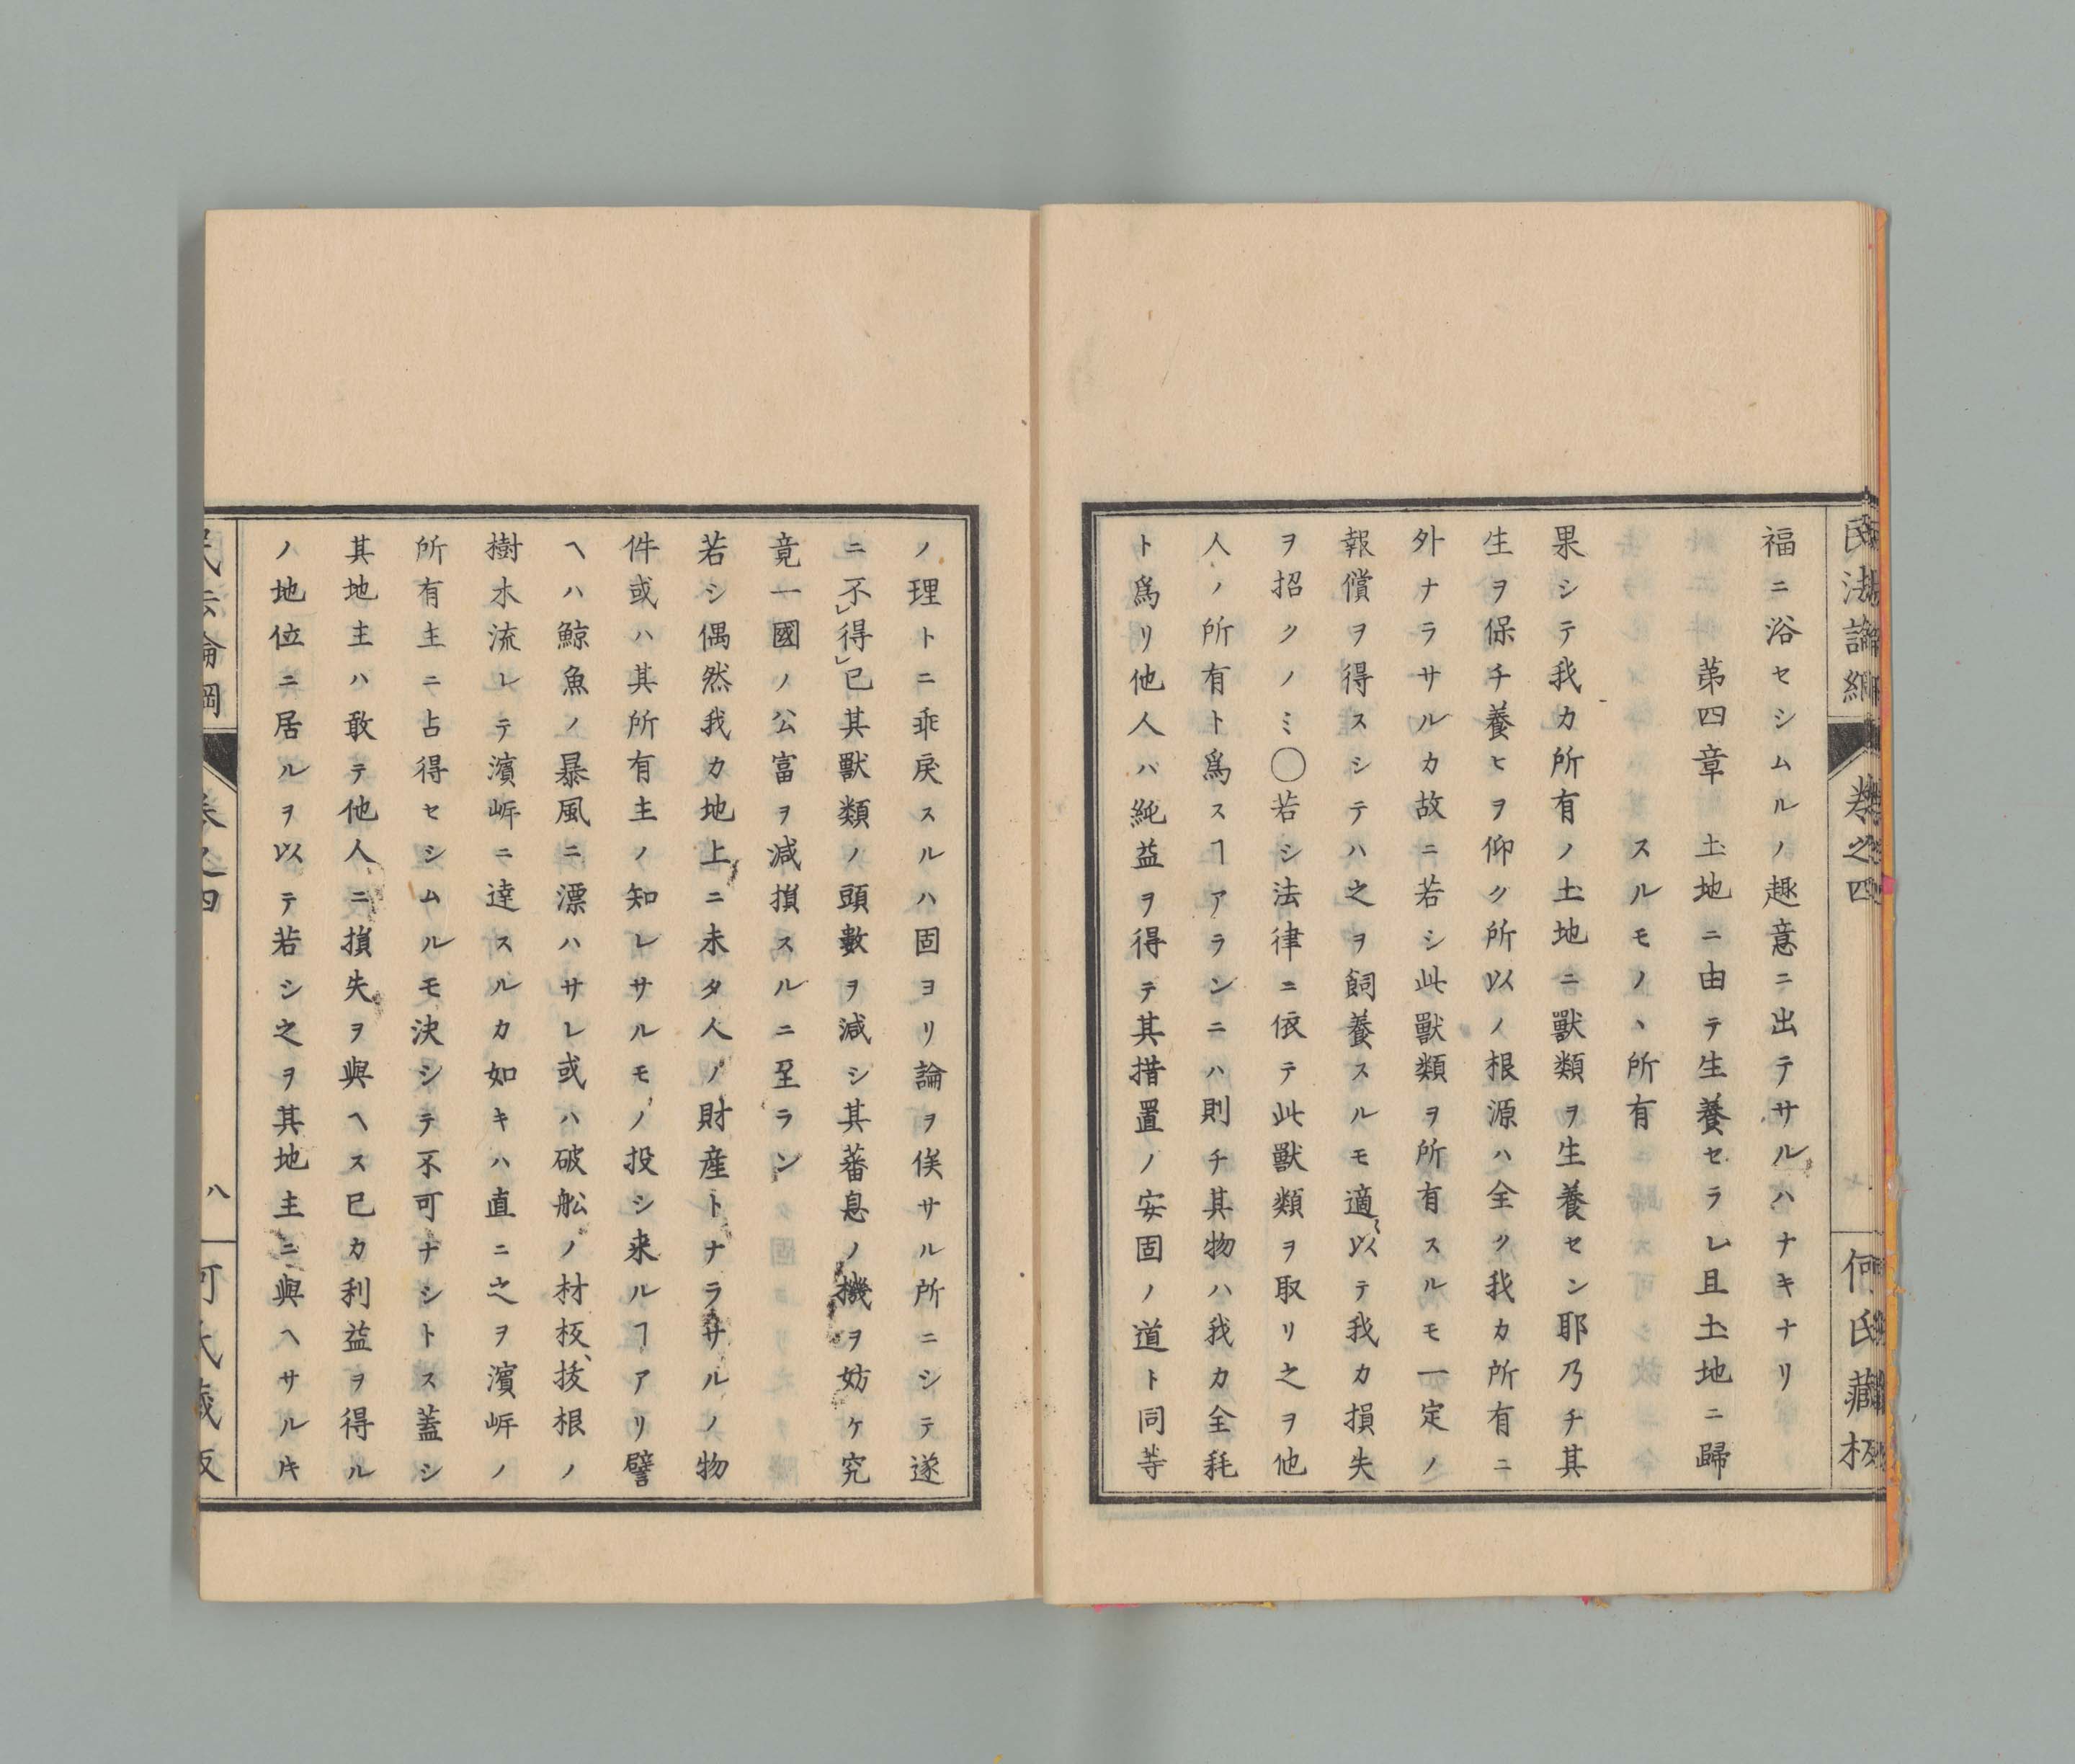 民法論綱 卷之四 何氏藏板
福ニ浴セシムルノ趣意ニ出テサルハナキナリ
第四章 土地ニ由テ生養セラレ且土地ニ歸
スルモノヽ所有
果シテ我カ所有ノ土地ニ獸類ヲ生養セン耶乃チ其
生ヲ保チ養ヒヲ仰ク所以ノ根源ハ全ク我カ所有ニ
外ナラサルカ故ニ若シ此獸類ヲ所有スルモ一定ノ
報償ヲ得スシテハ之ヲ飼養スルモ適〻以テ我カ損失
ヲ招クノミ〇若シ法律ニ依テ此獸類ヲ取リ之ヲ他
人ノ所有ト爲スヿアランニハ則チ其物ハ我カ全耗
ト爲リ他人ハ純益ヲ得テ其措置ノ安固ノ道ト同等
ノ理トニ乖戾スルハ固ヨリ論ヲ俟サル所ニシテ遂
ニ不㆑得㆑已其獸類ノ頭數ヲ減シ其蕃息ノ機ヲ妨ケ究
竟一國ノ公富ヲ減損スルニ至ラン
若シ偶然我カ地上ニ未タ人ノ財産トナラサルノ物
件或ハ其所有主ノ知レサルモノ投シ来ルヿアリ譬
ヘハ鯨魚ノ暴風ニ漂ハサレ或ハ破舩ノ材板、拔根ノ
樹木流レテ濱岼ニ達スルカ如キハ直ニ之ヲ濱岼ノ
所有主ニ占得セシムルモ決シテ不可ナシトス蓋シ
其地主ハ敢テ他人ニ損失ヲ與ヘス已カ利益ヲ得ル
ノ地位ニ居ルヲ以テ若シ之ヲ其地主ニ與ヘサルキ
民法論綱 卷之四 八 何氏藏板